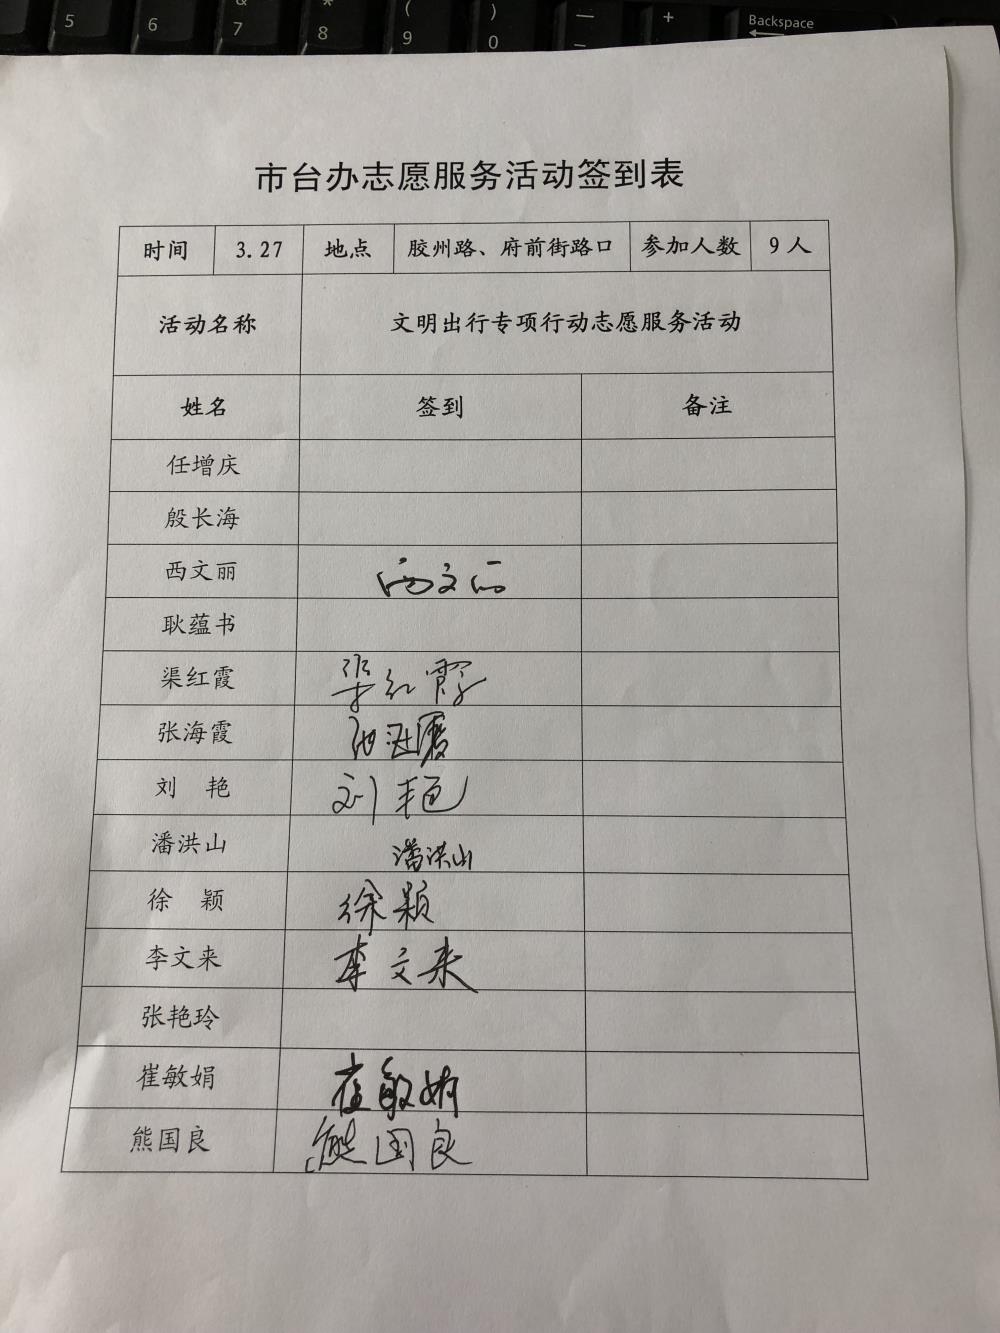 5 6 & 7 * 8 ( 9 ) 0 — _ + Backspace
市台办志愿服务活动签到表
时间 3.27 地点 胶州路、府前街路口 参加人数 9人
活动名称 文明出行专项行动志愿服务活动
姓名 签到 备注
任增庆
殷长海
西文丽 西文丽
耿蕴书
渠红霞 渠红霞
张海霞 张海霞
刘 艳 刘艳
潘洪山 潘洪山
徐 颖 徐颖
李文来 李文来
张艳玲
崔敏娟 崔敏娟
熊国良 熊国良